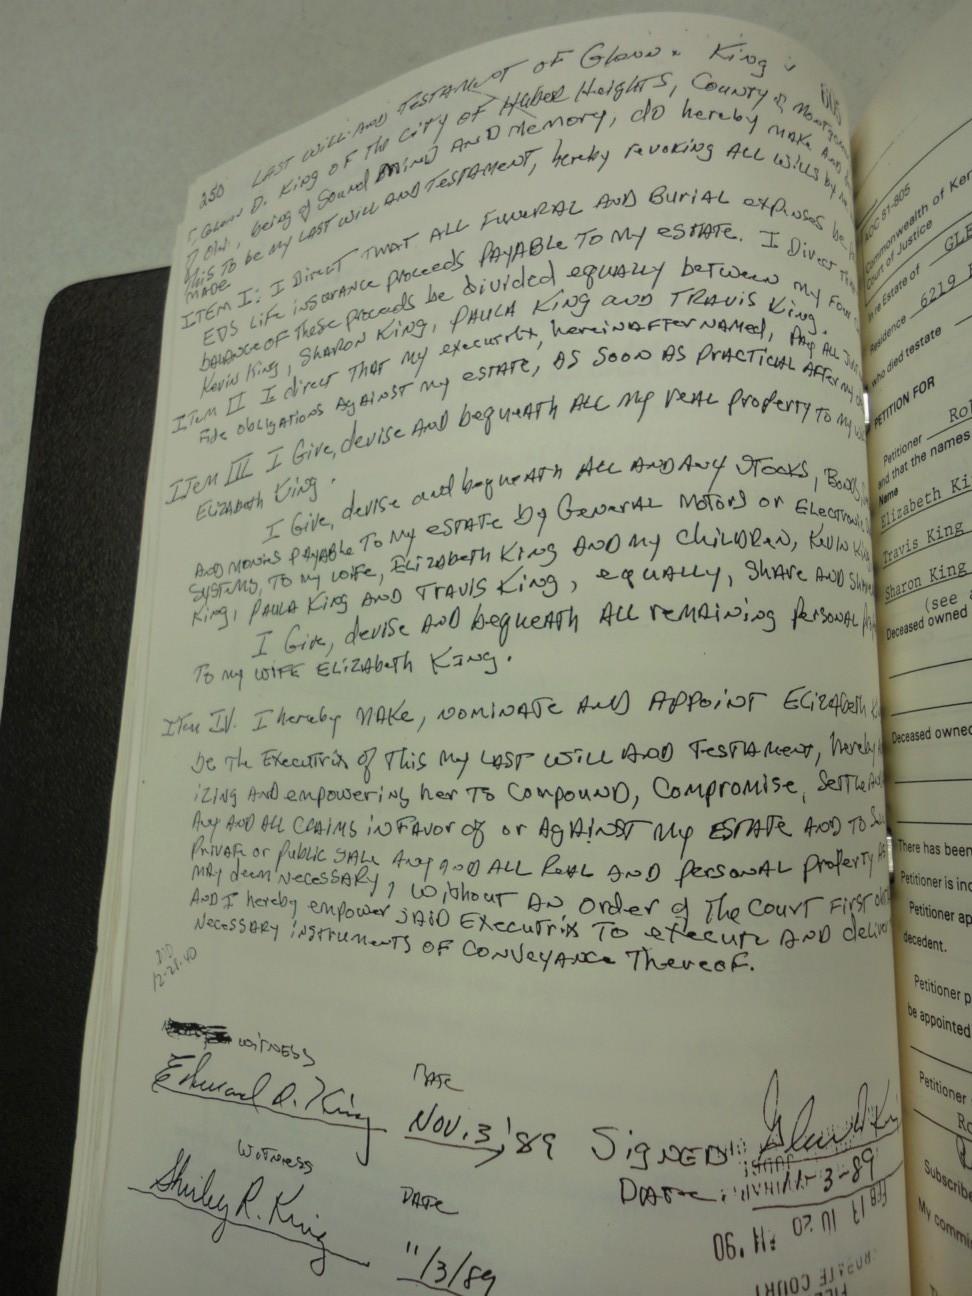 250 LAST WILL AND TESTAMENT OF Glenn King
I, Glenn D. King OF The City OF Huber Heights, County of Montgomery
, being of Sound MIND AND MEMORY, do hereby MAKE AND
This to be my LAST WILL AND TESTAMENT, hereby revoking ALL Wills by me
MADE
ITEM I: I Direct THAT ALL FUNERAL AND Burial expenses be
EDS LIFE insurance proceeds PAYABLE TO My ESTATE. I Direct
balance of These proceeds be divided equally between my Four
Kevin King, Sharon King, PAULA King and TRAVIS King.
ITem II I direct THAT my executrix, hereinafter NAMED, Pay ALL
obligations Against my estate, AS SOON AS PRACTICAL After my
ITem III I Give, devise AND bequeath ALL my real property to my
Elizabeth King.
I Give, devise and bequeath ALL AND ANY STOCKS, Bonds,
AND MONIES PAYABLE To my estate by General Motors or Electronic
SYSTEMS, To my wife, Elizabeth King AND my Children, Kevin
King, PAULA King AND TRAVIS King, equally, Share AND Share
I Give, devise AND bequeath ALL remaining personal
To my WIFE Elizabeth King.
ITem IV. I hereby MAKE, NOMINATE AND APPOINT Elizabeth
be the Executrix of This my LAST WILL AND TESTAMENT, hereby
izing AND empowering her To Compound, Compromise, Settle AND
Any AND ALL CLAIMS in FAVOR of or AGAINST my ESTATE AND TO
Private or Public SALE Any AND ALL REAL AND personal property AS
may deem necessary, Without AN order of The Court First
AND I hereby empower SAID EXECUTRIX To execute AND deliver
Necessary instruments OF CONVEYANCE Thereof.
12-28-40
WITNESS
Edward A. King
DATE
NOV. 3, '89
SIGNED Glenn D King
DATE: 11-3-89
WITNESS
Shirley R. King
DATE
11/3/89
FEB 17 10 20 AM '90
COURT
005
AOC 81-805
Commonwealth of Ken
Court of Justice
In re Estate of GLE
Residence 6219
who died testate
PETITION FOR
Petitioner
and that the names
Name
Elizabeth Ki
Travis King
Sharon King
(see a
Deceased owned
Deceased owned
There has been
Petitioner is
Petitioner ap
decedent.
Petitioner p
be appointed
Petitioner
Subscribe
My commi